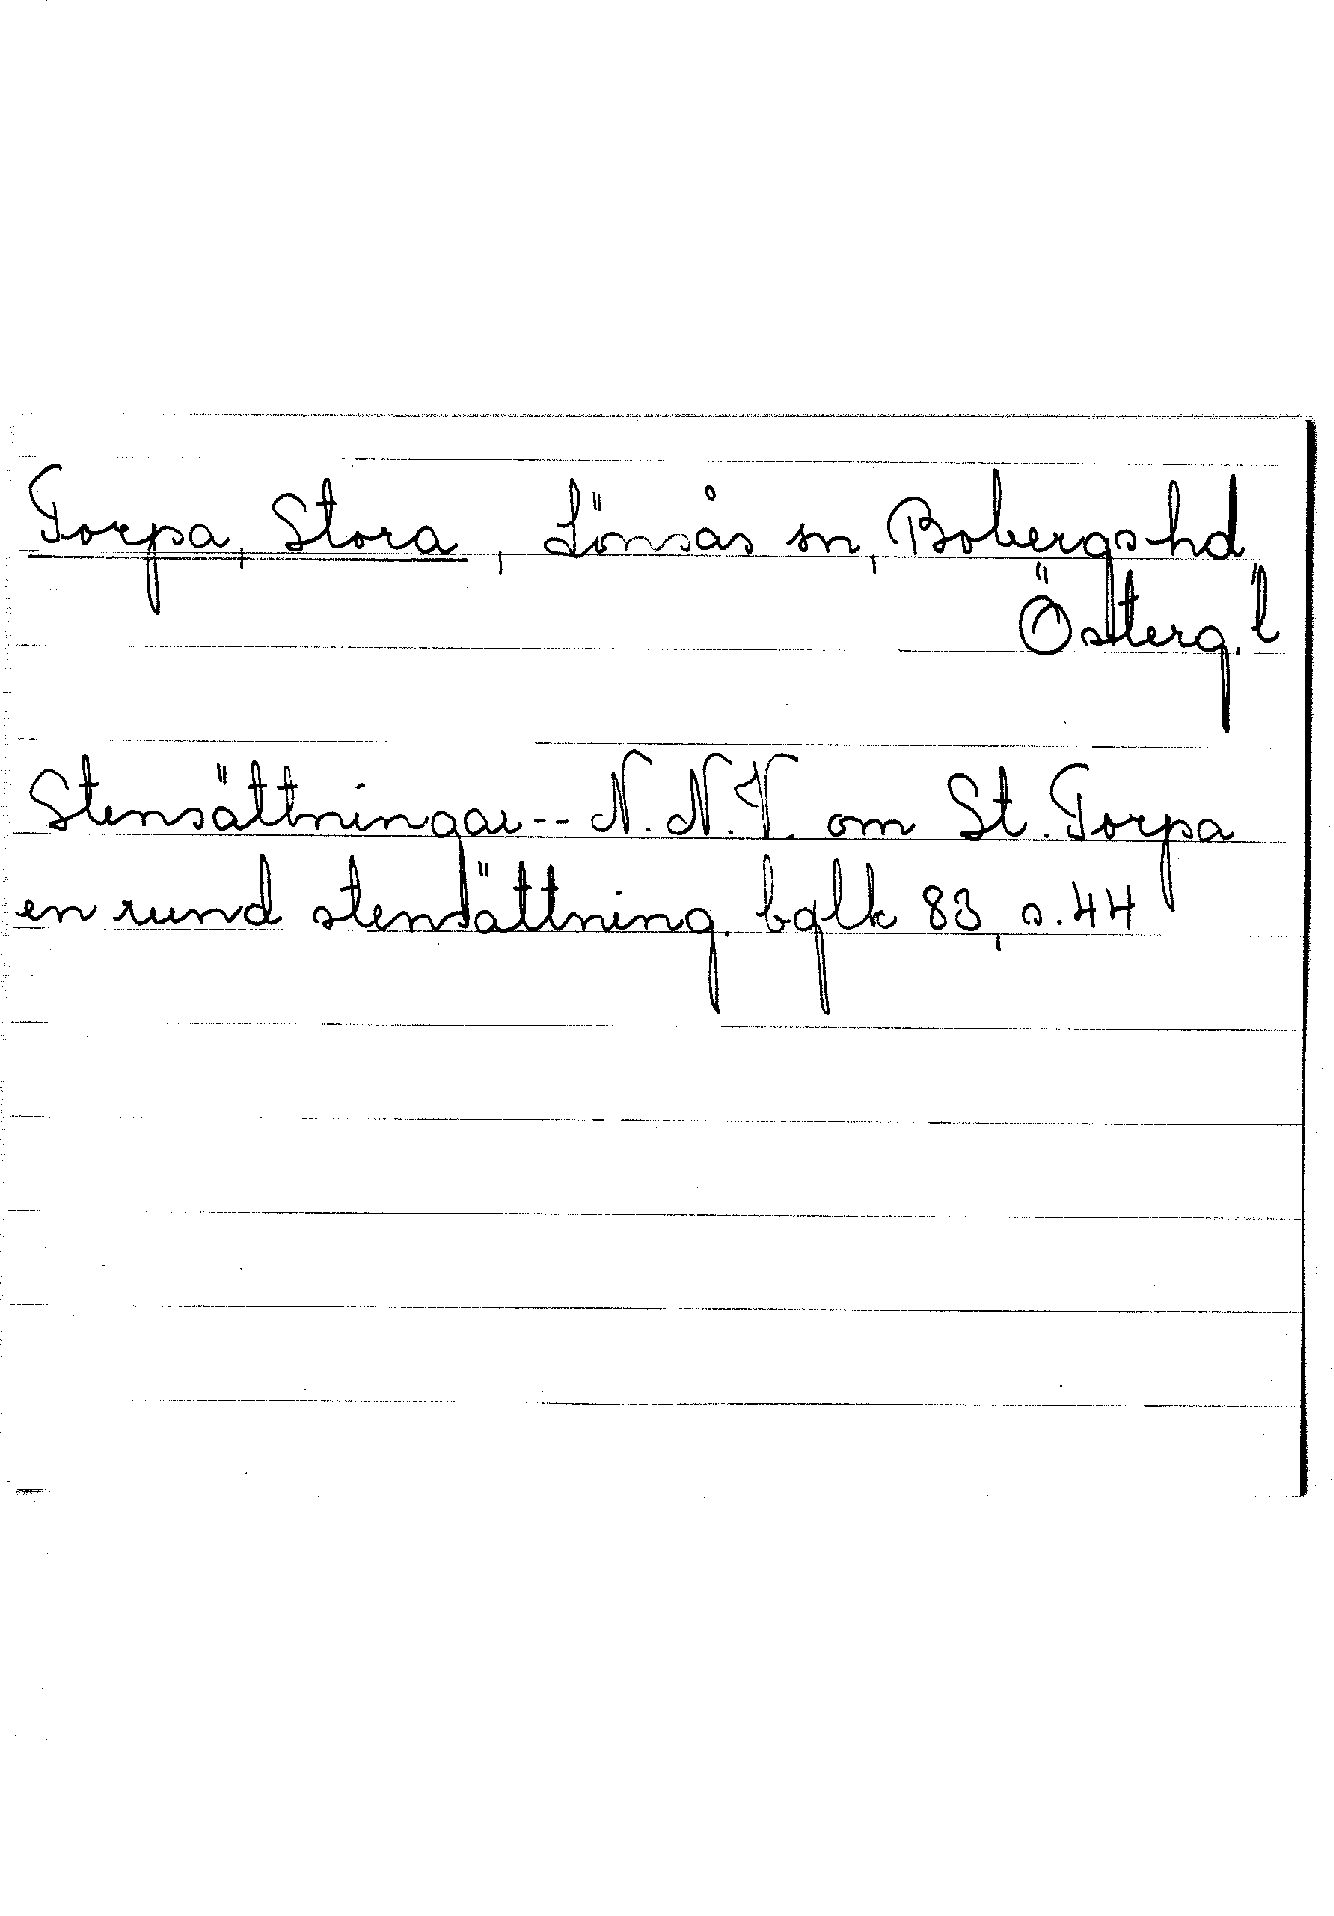 Torpa, Stora, Lönsås sn, Bobergs hd
Österg. l
Stensättningar -- N.N.V. om St. Torpa
en rund stensättning. bglk 83, s. 44